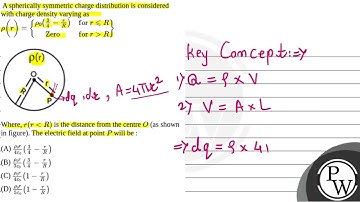 A spherically symmetric charge distribution is considered
with charge density varying as
ρ(r) = { ρ₀(3/4 − r/R) for r ≤ R
Zero for r > R }
ρ(r)
r
P
R
dq, dr, A=4πr²
Where, r(r < R) is the distance from the centre O (as shown
in figure). The electric field at point P will be :
(A) ρ₀r/4ε₀ (3/4 − r/R)
(B) ρ₀r/3ε₀ (3/4 − r/R)
(C) ρ₀r/4ε₀ (1 − r/R)
(D) ρ₀r/5ε₀ (1 − r/R)
Key Concept:⇒
1) Q = ρ × V
2) V = A × L
⇒ dq = ρ × 4π
PW